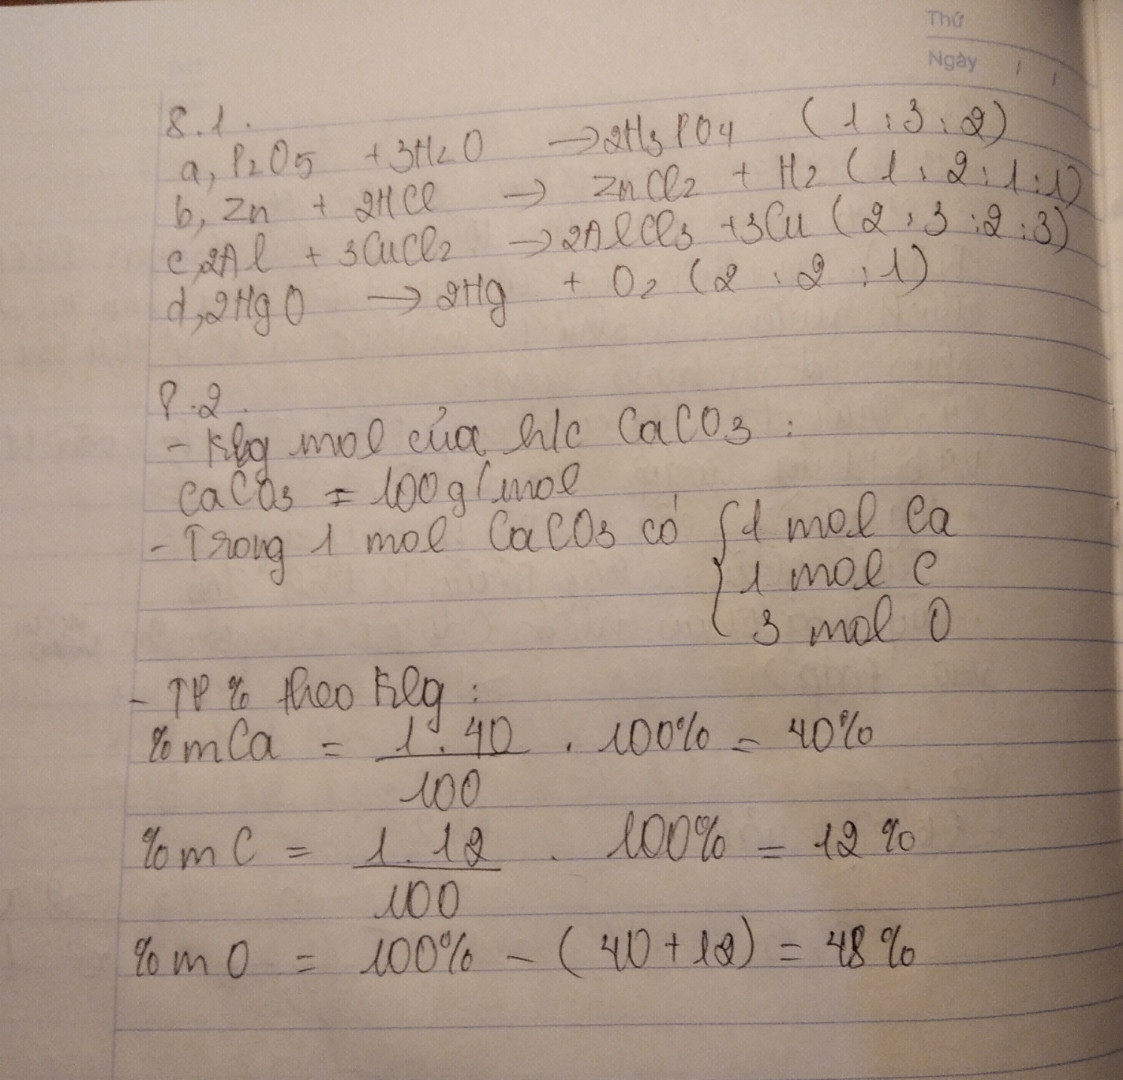 Thứ
Ngày / /
8.1.
a, P2O5 + 3H2O → 2H3PO4 (1:3:2)
b, Zn + 2HCl → ZnCl2 + H2 (1:2:1:1)
c, 2Al + 3CuCl2 → 2AlCl3 + 3Cu (2:3:2:3)
d, 2HgO → 2Hg + O2 (2:2:1)
8.2.
- Klg mol của h/c CaCO3 :
CaCO3 = 100g/mol
- Trong 1 mol CaCO3 có { 1 mol Ca
1 mol C
3 mol O
- TP % theo Klg :
%mCa = 1.40/100 . 100% = 40%
%mC = 1.12/100 . 100% = 12%
%mO = 100% - (40+12) = 48%